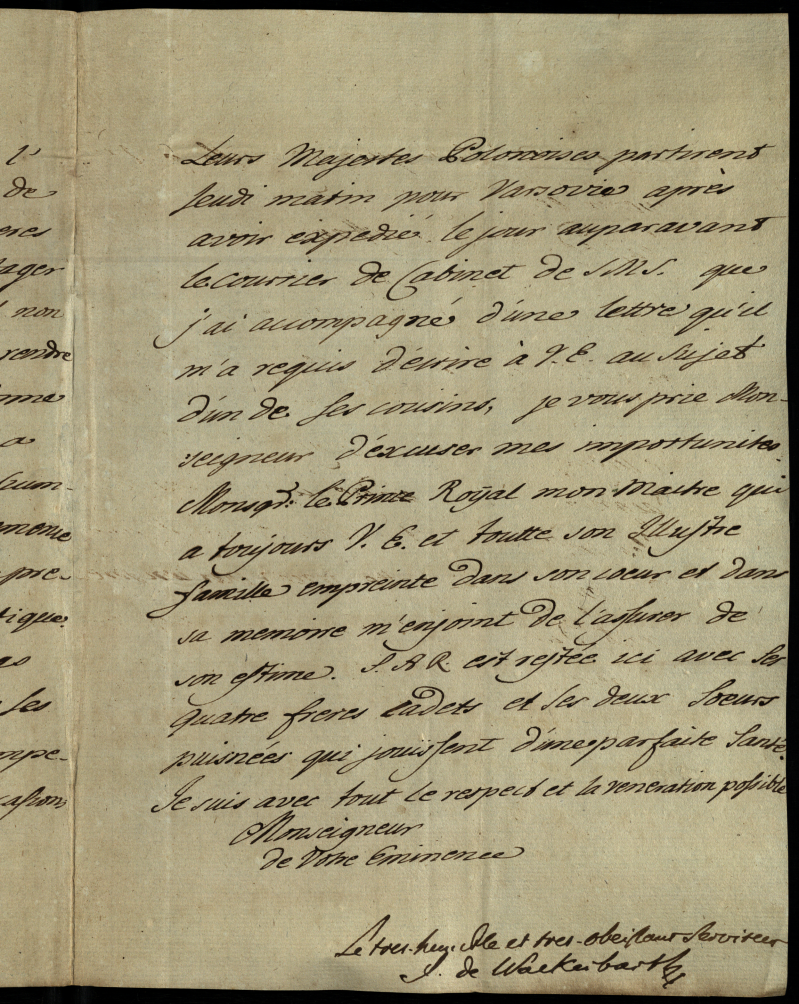 l'
de
eres
tager
non
rendre
mme
a
pre-
tique
Ses
Leurs Majestes Polonoises partirent
Jeudi matin pour Varsovie après
avoir expedié le jour auparavant
le Courrier de Cabinet de S.M.S. que
j'ai accompagné d'une lettre qu'il
m'a requis d'écrire à V.E. au Sujet
d'un de Ses cousins, je vous prie Mon-
seigneur d'éxcuser mes importunites.
Monsgr. le Prince Roÿal mon Maitre qui
a toujours V. E. et toutte son Illustre
famille empreinte dans son coeur et dans
sa memoire m'enjoint de l'assurer de
son estime. S. A R. est restée ici avec Ses
quatre freres cadets et Ses deux Soeurs
puisnées qui jouissent d'une parfaite Santé.
Je suis avec tout le respect et la veneration possible
Monseigneur
de Votre Eminence
Le tres-humble et tres-obeissant Serviteur
J. de Wackerbarth